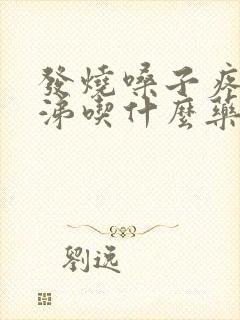 發燒嗓子疼
涕喫什麼藥
劉逸